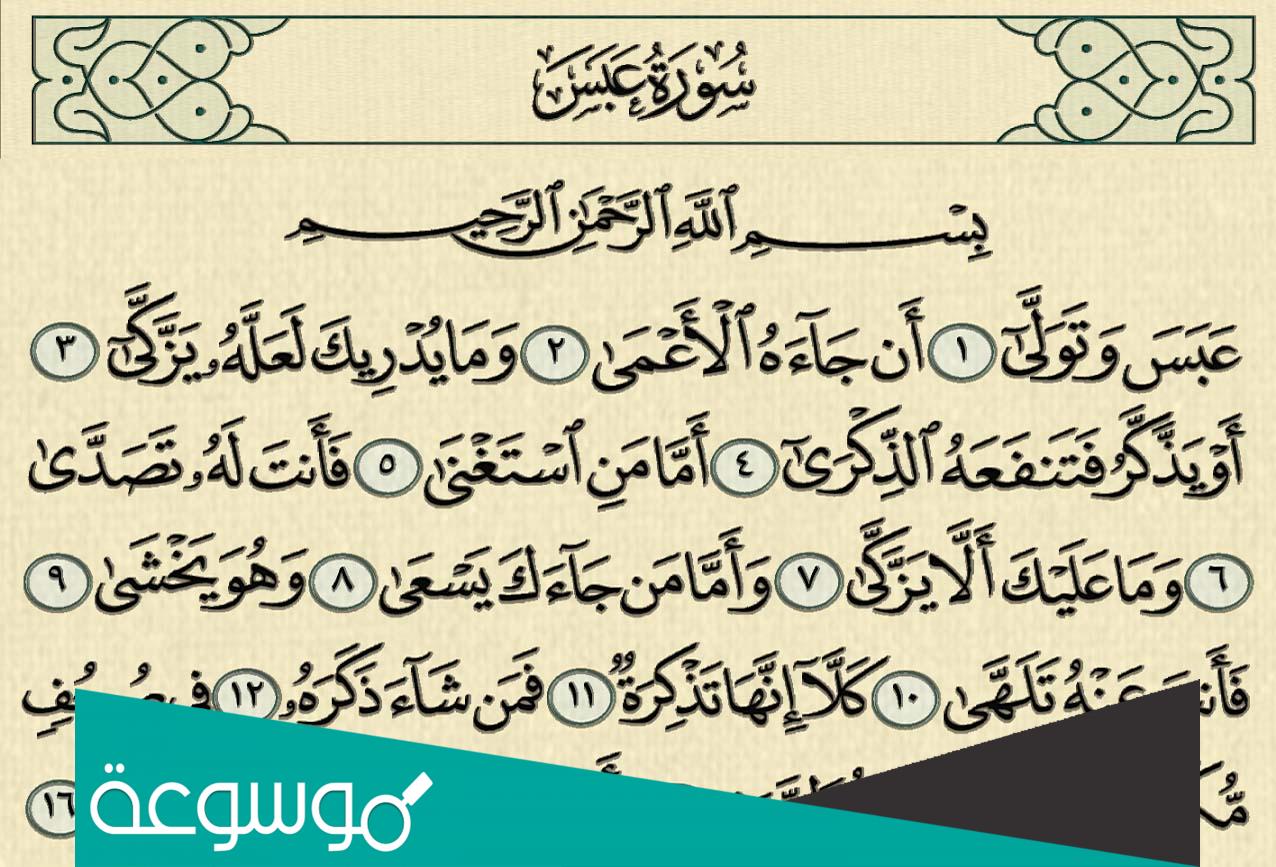 سُورَةُ عَبَسَ
بِسْمِ ٱللَّهِ ٱلرَّحْمَٰنِ ٱلرَّحِيمِ
عَبَسَ وَتَوَلَّىٰٓ ١ أَن جَآءَهُ ٱلْأَعْمَىٰ ٢ وَمَا يُدْرِيكَ لَعَلَّهُۥ يَزَّكَّىٰٓ ٣
أَوْ يَذَّكَّرُ فَتَنفَعَهُ ٱلذِّكْرَىٰٓ ٤ أَمَّا مَنِ ٱسْتَغْنَىٰ ٥ فَأَنتَ لَهُۥ تَصَدَّىٰ
٦ وَمَا عَلَيْكَ أَلَّا يَزَّكَّىٰ ٧ وَأَمَّا مَن جَآءَكَ يَسْعَىٰ ٨ وَهُوَ يَخْشَىٰ ٩
فَأَنتَ عَنْهُ تَلَهَّىٰ ١٠ كَلَّآ إِنَّهَا تَذْكِرَةٌ ١١ فَمَن شَآءَ ذَكَرَهُۥ ١٢ فِى صُحُفٍ
١٦
موسوعة